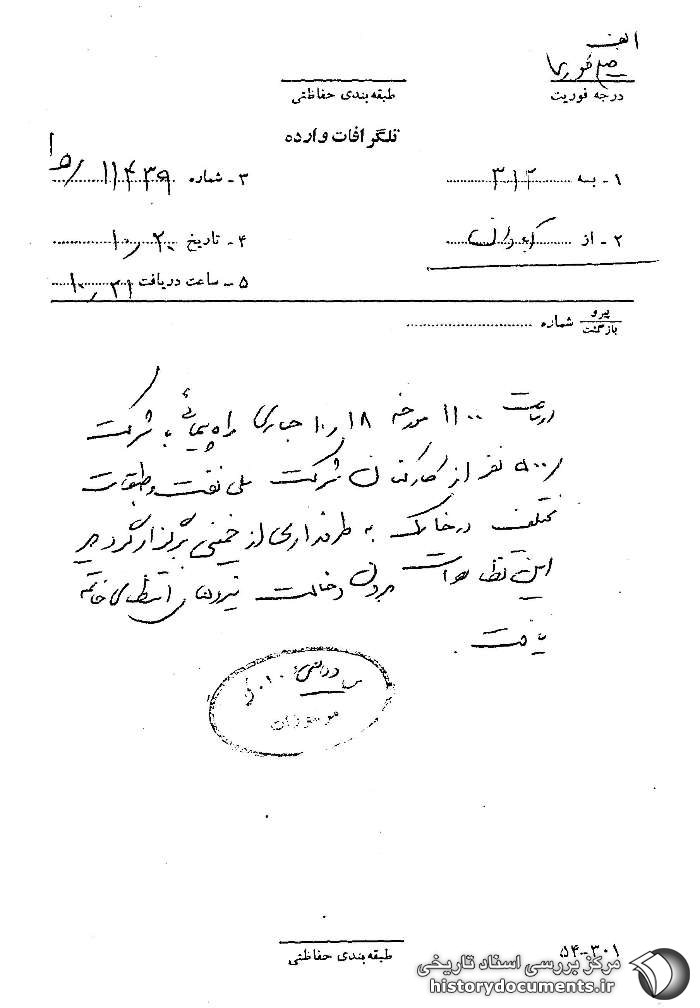 الف
خیلی فوری
درجه فوریت
طبقه‌بندی حفاظتی
تلگرافات وارده
۱- به ۳۱۲
۳- شماره ۱۱۴۳۹
۲- از
۴- تاریخ ۱۰٫۲۰
۵- ساعت دریافت ۱۰٫۲۱
پیرو
بازگشت شماره
از ساعت ۱۱۰۰ مورخه ۱۸ ر ۱۰ جاری راه پیمائی با شرکت
۵۰۰ نفر از کارکنان شرکت ملی نفت و طبقات
مختلف در خارک به طرفداری از خمینی برگزار گردید
این تظاهرات بدون دخالت نیروهای انتظامی خاتمه
یافت.
طبقه‌بندی حفاظتی
۵۴-۳۰۱
مرکز بررسی اسناد تاریخی
historydocuments.ir